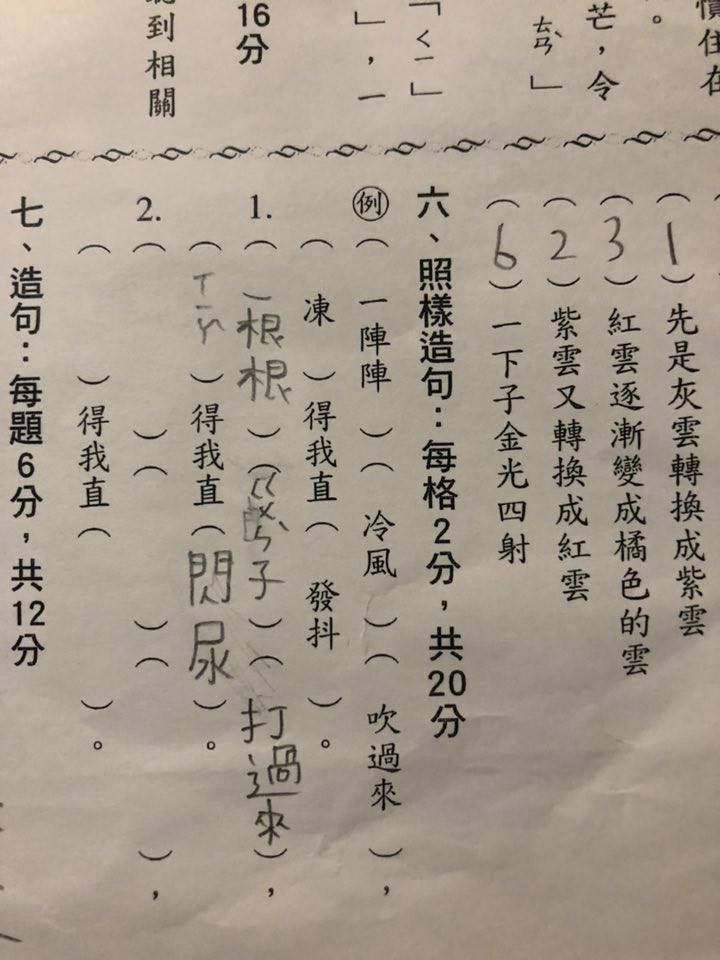 慣住在
。
芒,令
」
「ㄑㄧ」
」,一
16分
到相關
( 1 )先是灰雲轉換成紫雲
( 3 )紅雲逐漸變成橘色的雲
( 2 )紫雲又轉換成紅雲
( 6 )一下子金光四射
六、照樣造句:每格2分,共20分
例( 一陣陣 )( 冷風 )( 吹過來 ),
( 凍 )得我直( 發抖 )。
1.( 一根根 )( ㄍㄨㄣˋ子 )( 打過來 ),
( ㄒㄧㄚˋ )得我直( 閃尿 )。
2.( )( )( ),
( )得我直( )。
七、造句:每題6分,共12分